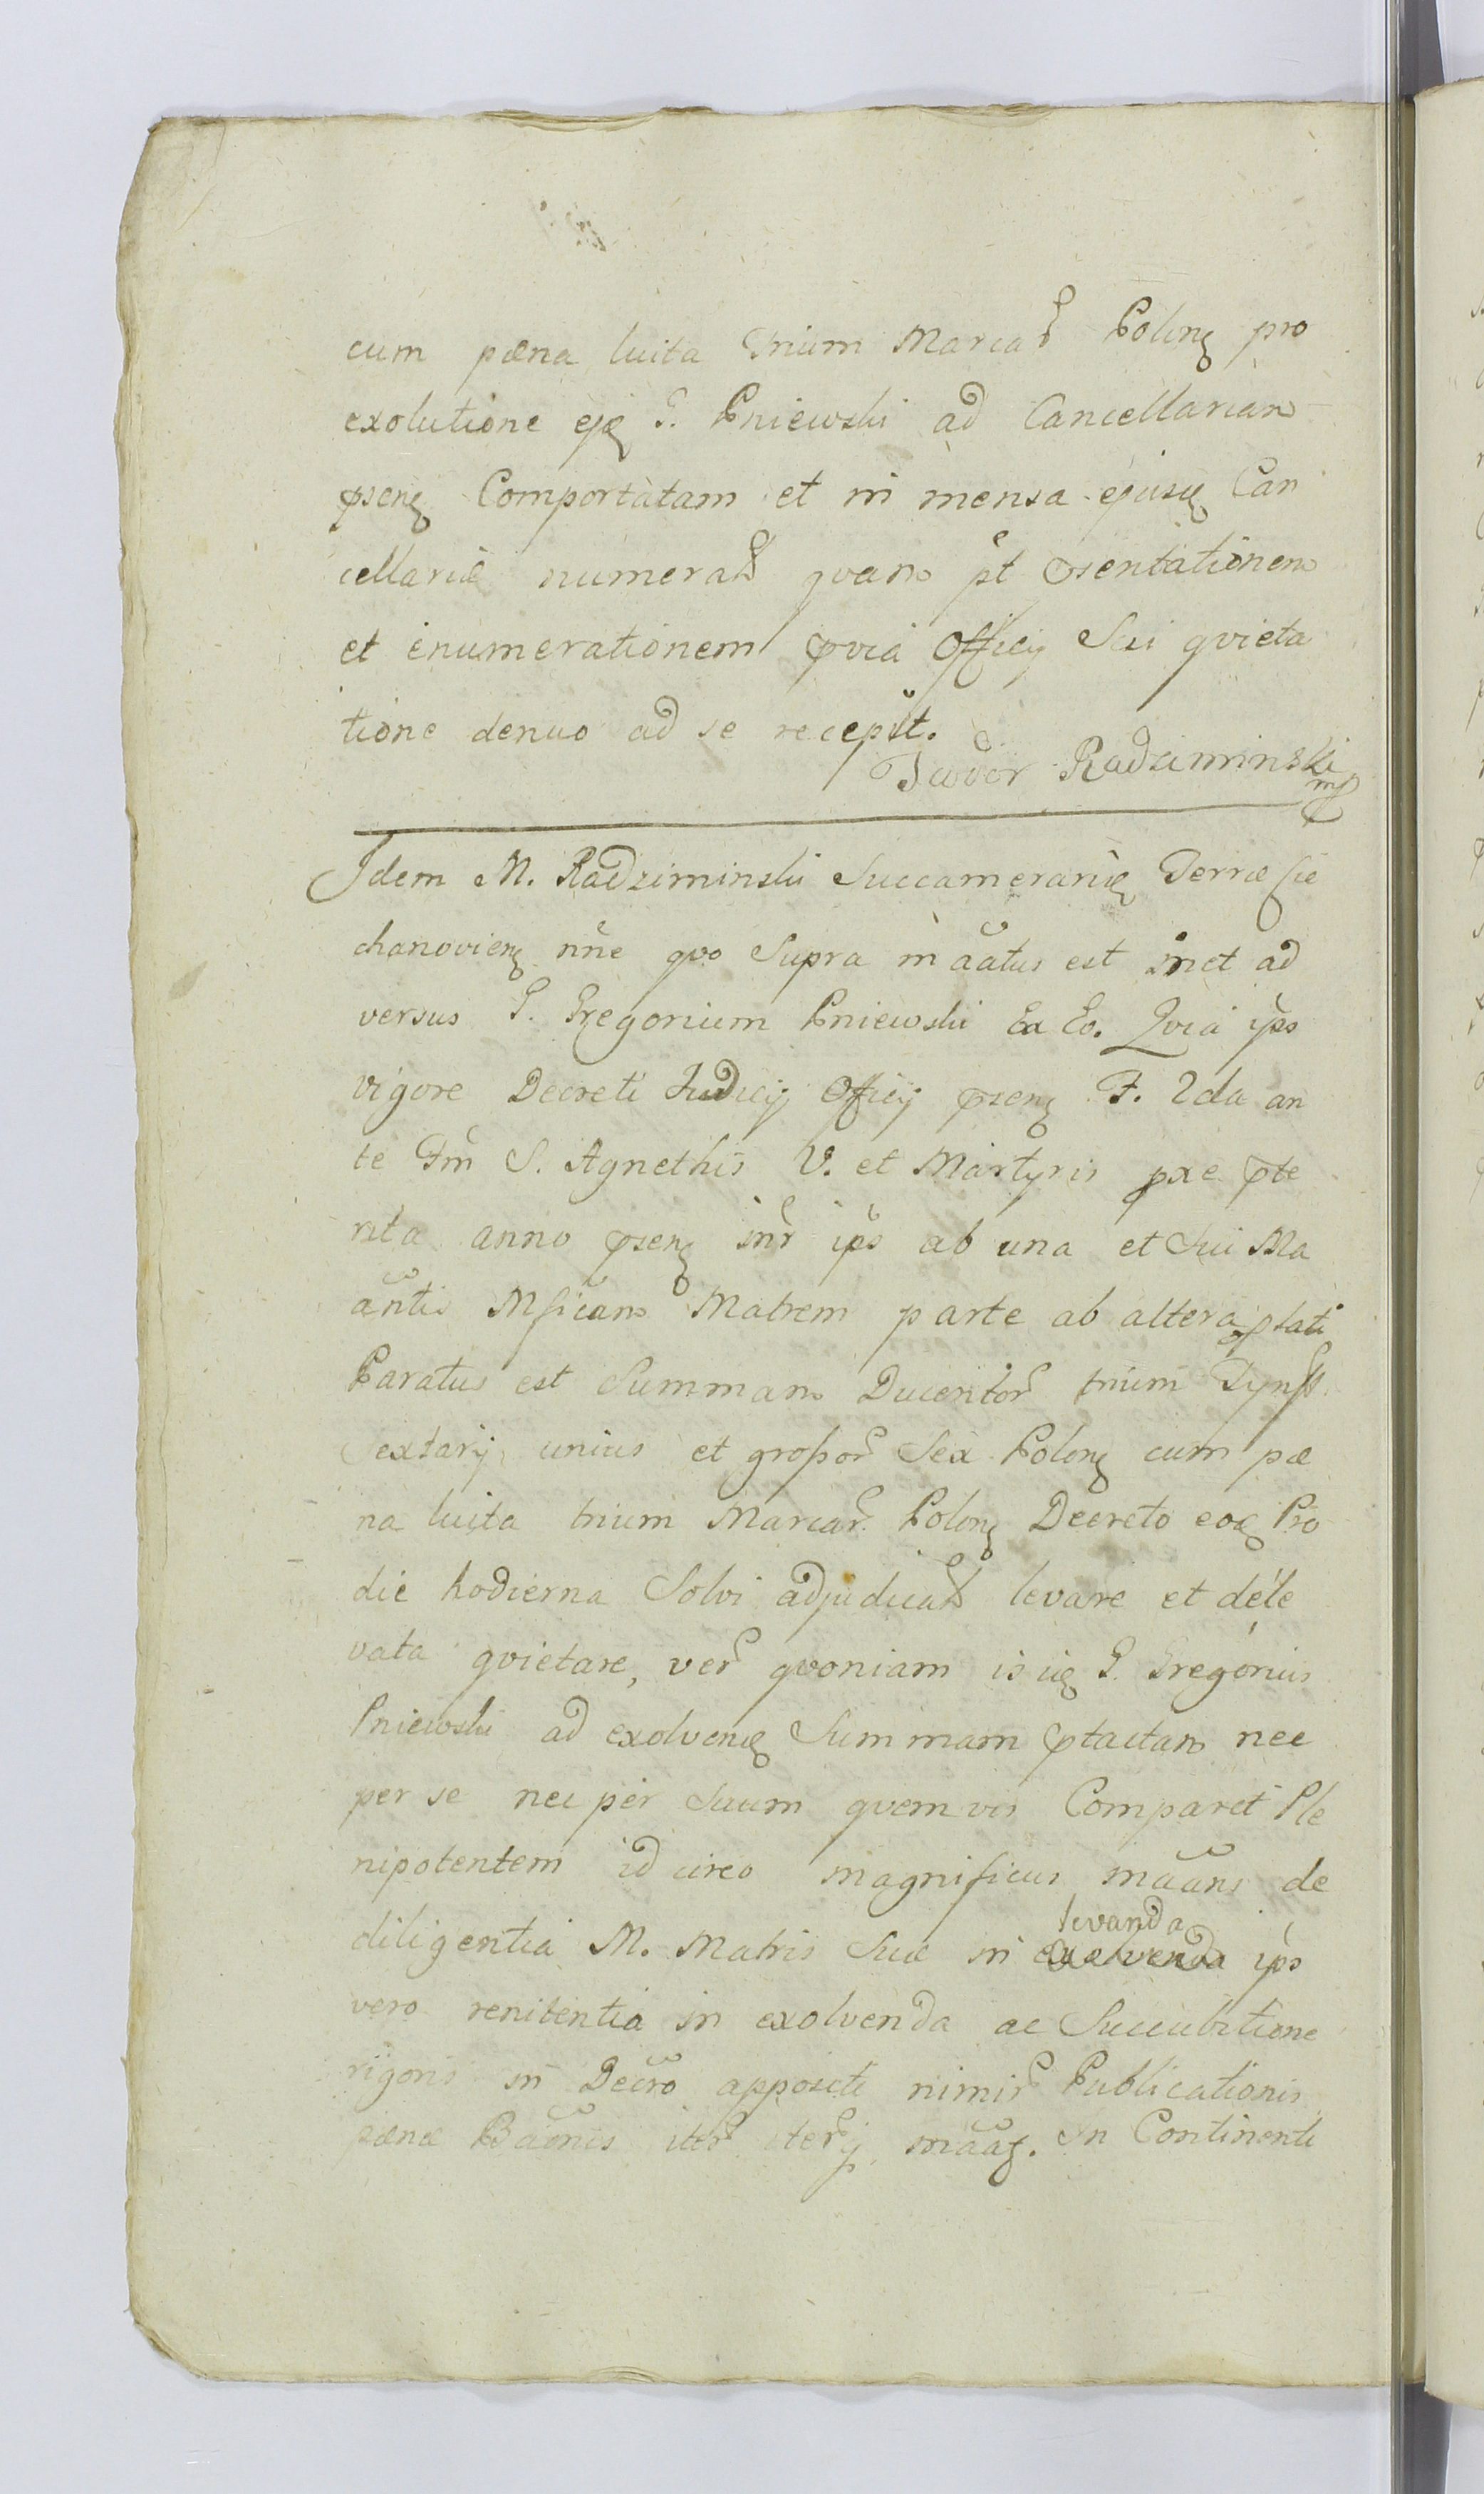 cum pæna luita trium Marcar Polonq pro
exolutione ejq G. Pniewski ad Cancellariam
psenq Comportatam et in mensa ejusq Can
cellariæ numeratt qvam pt psentationem
et enumerationem pvia Officij Sui qvieta
tione denuo ad se recepit.
Teodor Radziminski
mp
Idem M. Radziminski Succamerariq Terræ Cie
chanovienq nne qvo Supra maatus est met ad
versus G. Gregorium Pniewski Ex Eo. Qvia ips
vigore Decreti Judicij Officij psenq F. 2da an
te Fm S. Agnethis V. et Martyris pxe pte
rita anno psenq intr ips ab una et Sui Ma
antis Mficam Matrem parte ab altera ptati
Paratus est Summam Ducentor trium Tynff
Sextarij unius et grossor Sex Polonq cum pæ
na luita trium Marcar Polonq Decreto eoq Pro
die hodierna Solvi adjudicatt levare et dele
vata qvietare, ver qvoniam is iq G. Gregorius
Pniewski ad exolvenq Summam ptactam nec
per se nec per Suum qvemvis Comparet Ple
nipotentem id circo magnificus maans de
diligentia M. Matris Suæ in levanda ips
vero renitentia in exolvenda ac Succubitione
rigoris in Decro appositi nimir Publicationis
pænæ Baonis iter iterq maatq. In Continenti